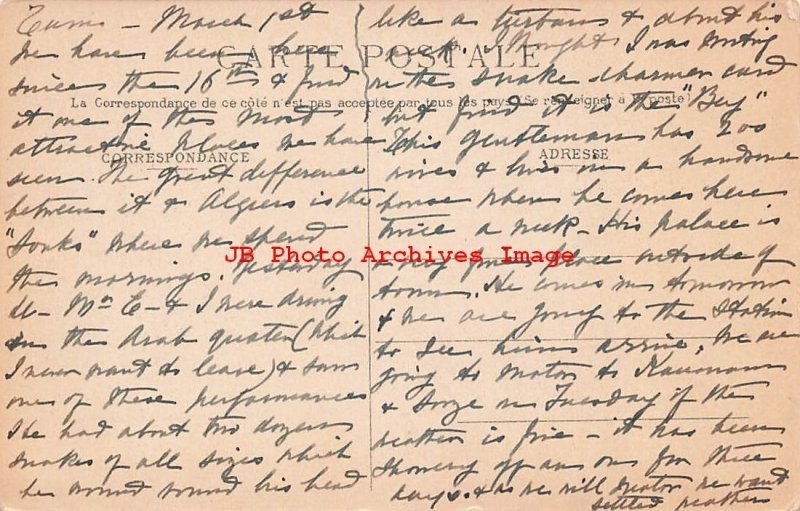 Tunis – March 1st
We have been here
since the 16th & find
it one of the most
attractive places we have
seen. The great difference
between it & Algiers is the
"Souks" where we spend
the mornings. Yesterday
Mrs E – & I were driving
in the Arab quarter (which
I never want to leave) & saw
one of these performances
He had about two dozen
snakes of all sizes which
he wound round his head
like a turban & about his
neck. I thought I was writing
on the snake charmer card
but find it is the "Bey"
This gentleman has 200
wives & lives in a handsome
house when he comes here
twice a week – His palace is
a very place outside of
town. He comes in tomorrow
& we are going to the Station
to see him arrive. We are
going to motor to
& on Tuesday if the
weather is fine – it has been
showery off an on for three
days & as we will motor we want
settled weather
CARTE POSTALE
La Correspondance de ce côté n'est pas acceptée par tous les pays (Se renseigner à la poste)
CORRESPONDANCE
ADRESSE
JB Photo Archives Image